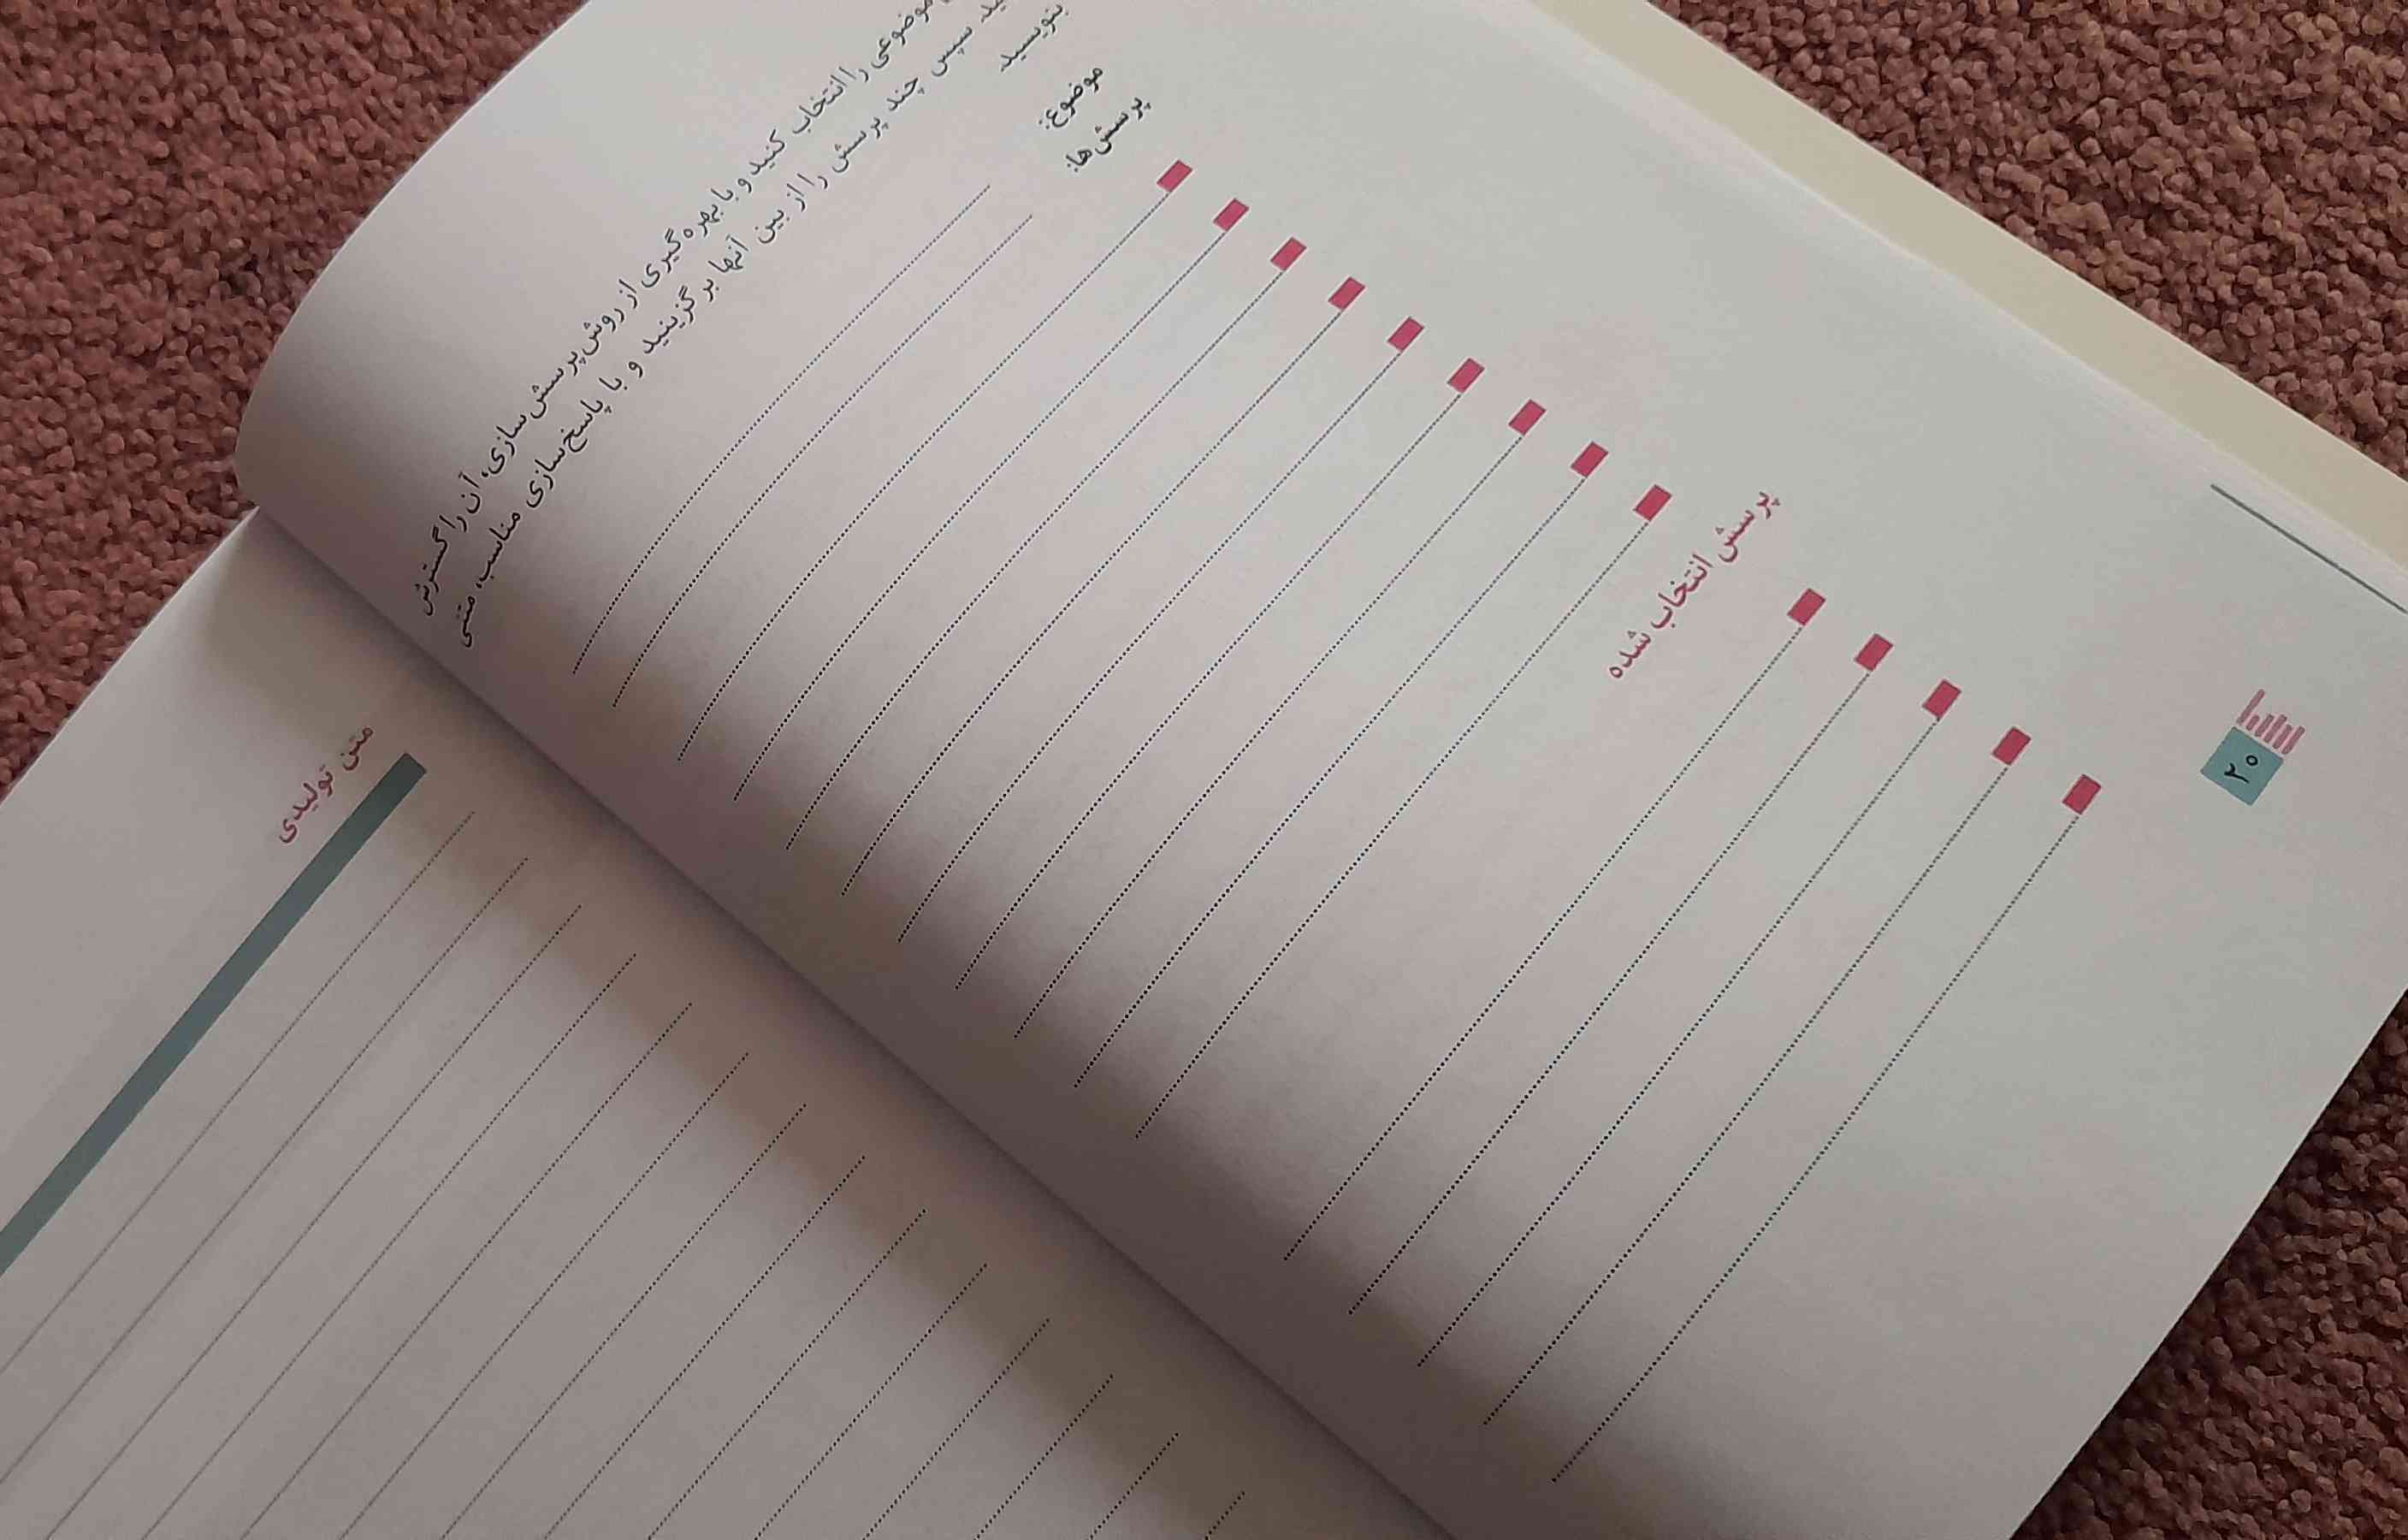 موضوعی را انتخاب کنید و با بهره‌گیری از روش پرسش‌سازی، آن را گسترش
سپس چند پرسش را از بین آنها برگزینید و با پاسخ‌سازی مناسب، متنی
بنویسید.
موضوع:
پرسش‌ها:
پرسش انتخاب شده
۲۰
متن تولیدی